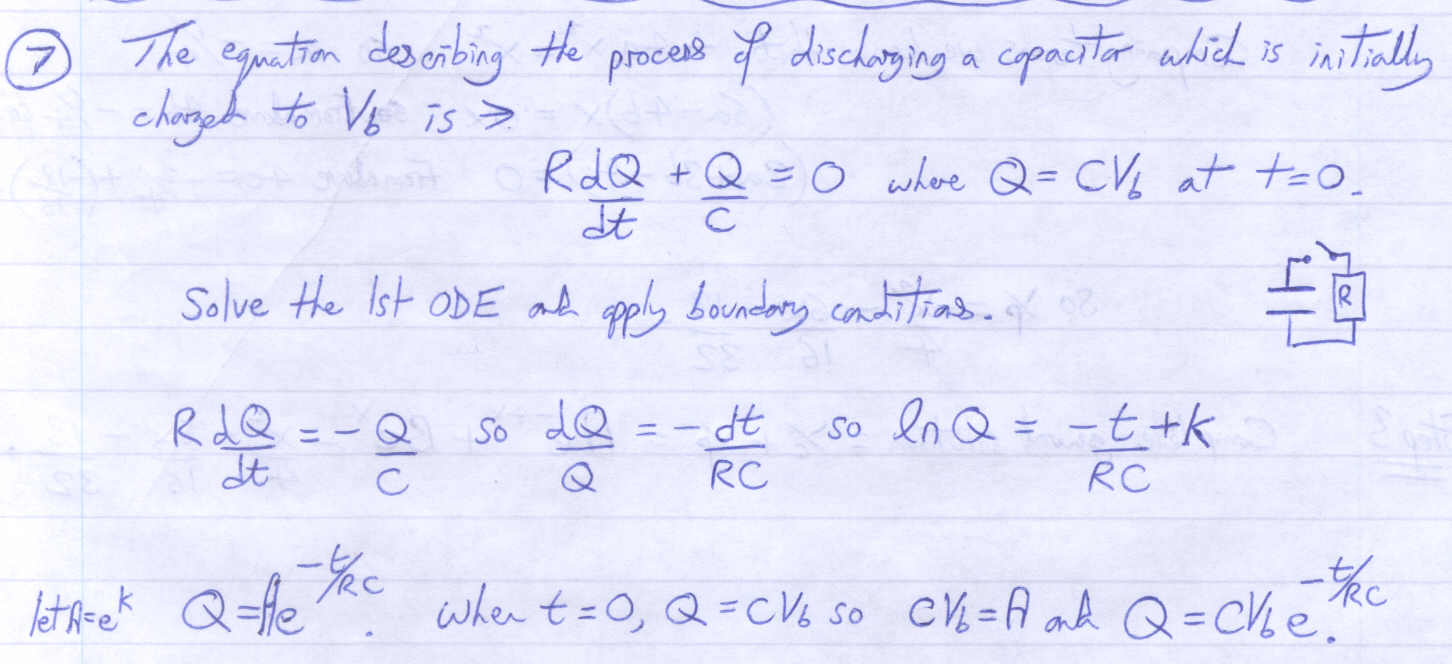 7 The equation describing the process of discharging a capacitor which is initially
charged to V_b is →
R dQ/dt + Q/C = 0 where Q = CV_b at t=0.
Solve the 1st ODE and apply boundary conditions.
R
R dQ/dt = - Q/C so dQ/Q = - dt/RC so ln Q = -t/RC + k
let A=e^k Q = Ae^(-t/RC). when t=0, Q = CV_b so CV_b = A and Q = CV_b e^(-t/RC).